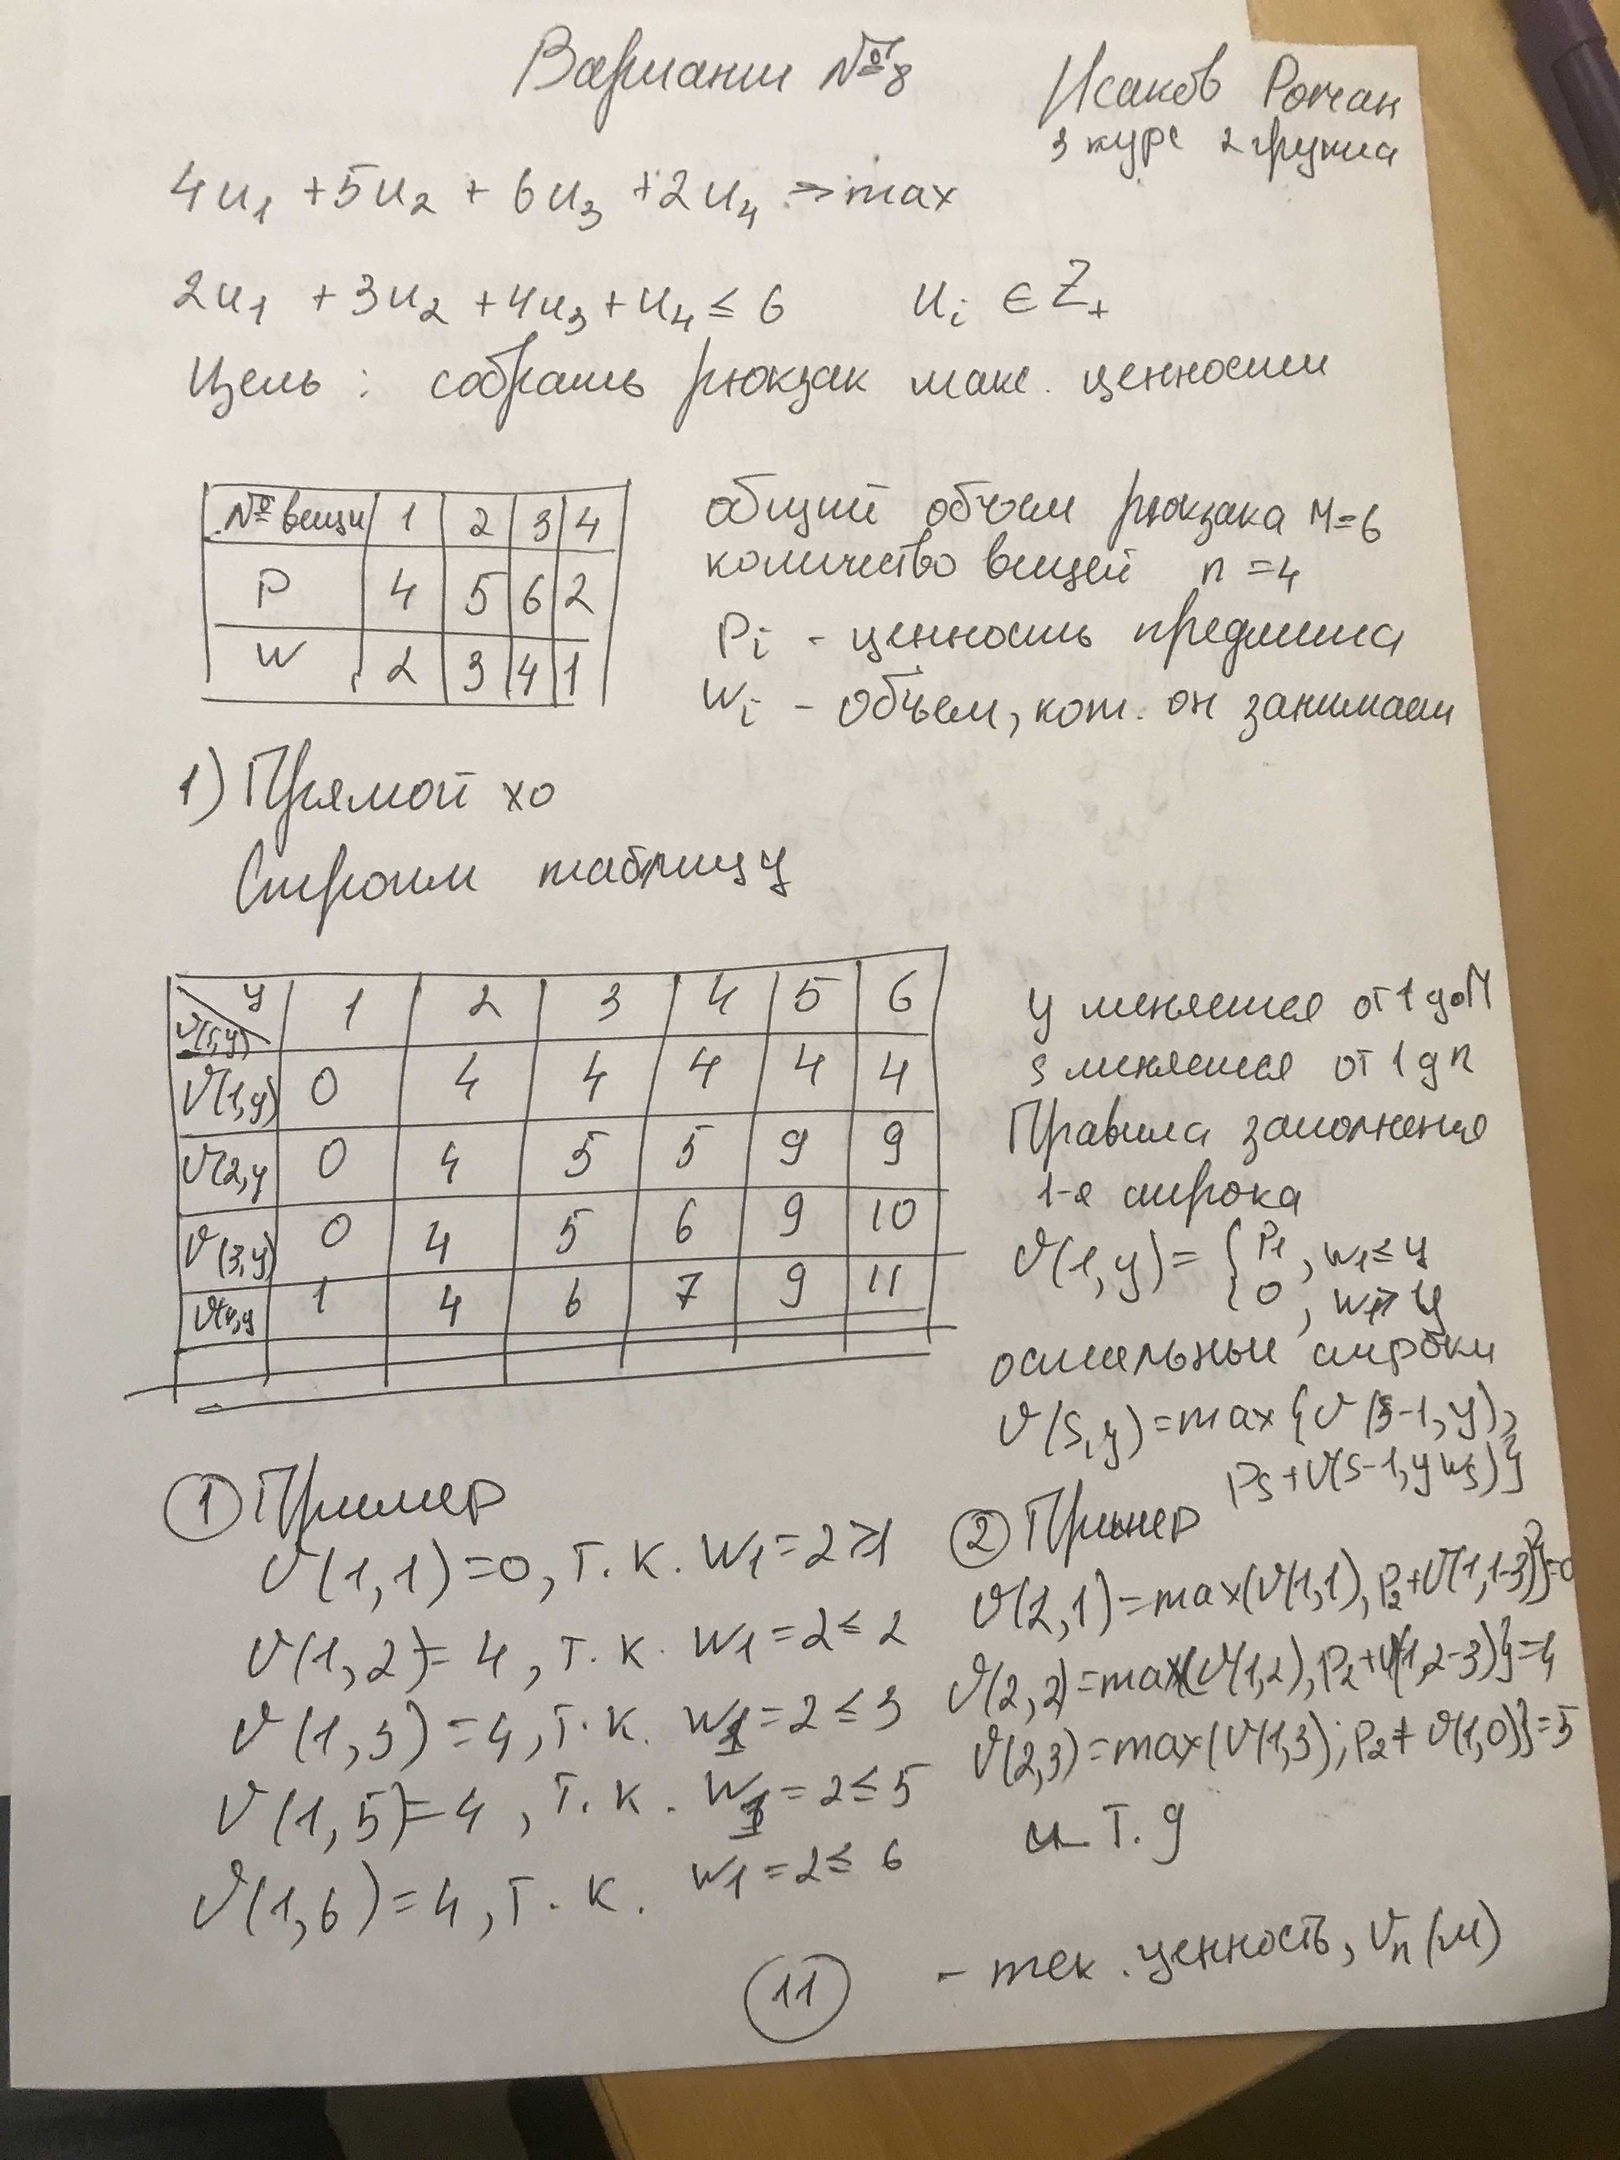 Вариант №8
Исаков Роман
3 курс 2 группа
4u₁ + 5u₂ + 6u₃ + 2u₄ → max
2u₁ + 3u₂ + 4u₃ + u₄ ≤ 6   uᵢ ∈ Z₊
Цель : собрать рюкзак макс. ценности
№ вещи 1 2 3 4
P 4 5 6 2
W 2 3 4 1
общий объем рюкзака M=6
количество вещей n = 4
Pᵢ - ценность предмета
Wᵢ - объем, кот. он занимает
1) Прямой хо
Строим таблицу
y 1 2 3 4 5 6
V(s,y)
V(1,y) 0 4 4 4 4 4
V(2,y 0 4 5 5 9 9
V(3,y) 0 4 5 6 9 10
V(4,y 1 4 6 7 9 11
y меняется от 1 до M
s меняется от 1 д n
Правила заполнения
1-я строка
V(1,y) = { P₁ , w₁ ≤ y
0 , w₁ > y
остальные строки
V(s,y) = max{V(s-1,y),
Ps + V(s-1, y ws)}
① Пример
V(1,1) = 0, т.к. W1 = 2 ≥ 1
V(1,2) = 4, т.к. W1 = 2 ≤ 2
V(1,3) = 4, т.к. W1 = 2 ≤ 3
V(1,5) = 4, т.к. W1 = 2 ≤ 5
V(1,6) = 4, т.к. W1 = 2 ≤ 6
② Пример
V(2,1) = max(V(1,1), P₂+V(1,1-3)}=0
V(2,2) = max(V(1,2), P₂+V(1,2-3)}=4
V(2,3) = max(V(1,3); P₂+V(1,0)}=5
и т.д
11 - тек. ценность, Vn(M)